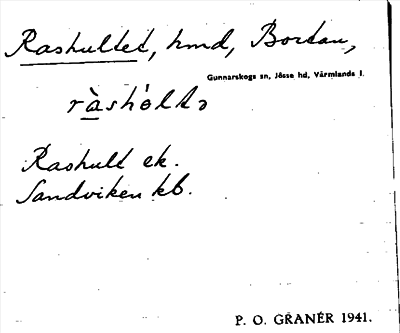 Rashultet, hmd, Bortan,
Gunnarskogs sn, Jösse hd, Värmlands l.
ràshòltə
Rashult ek.
Sandviken kb.
P. O. GRANÉR 1941.